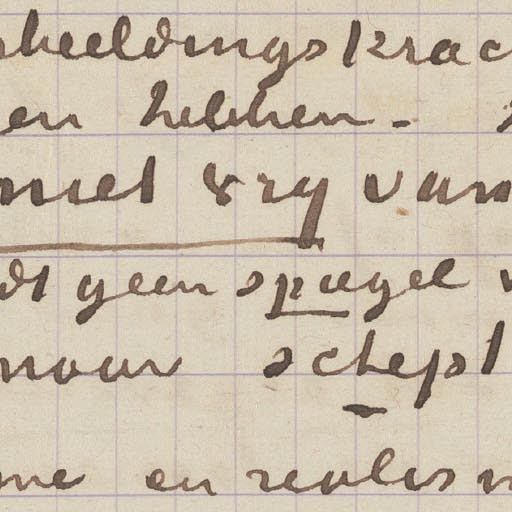 rbeeldingskrac
en hebben. -
niet vry van
dt geen spiegel v
maar schept
me en realism